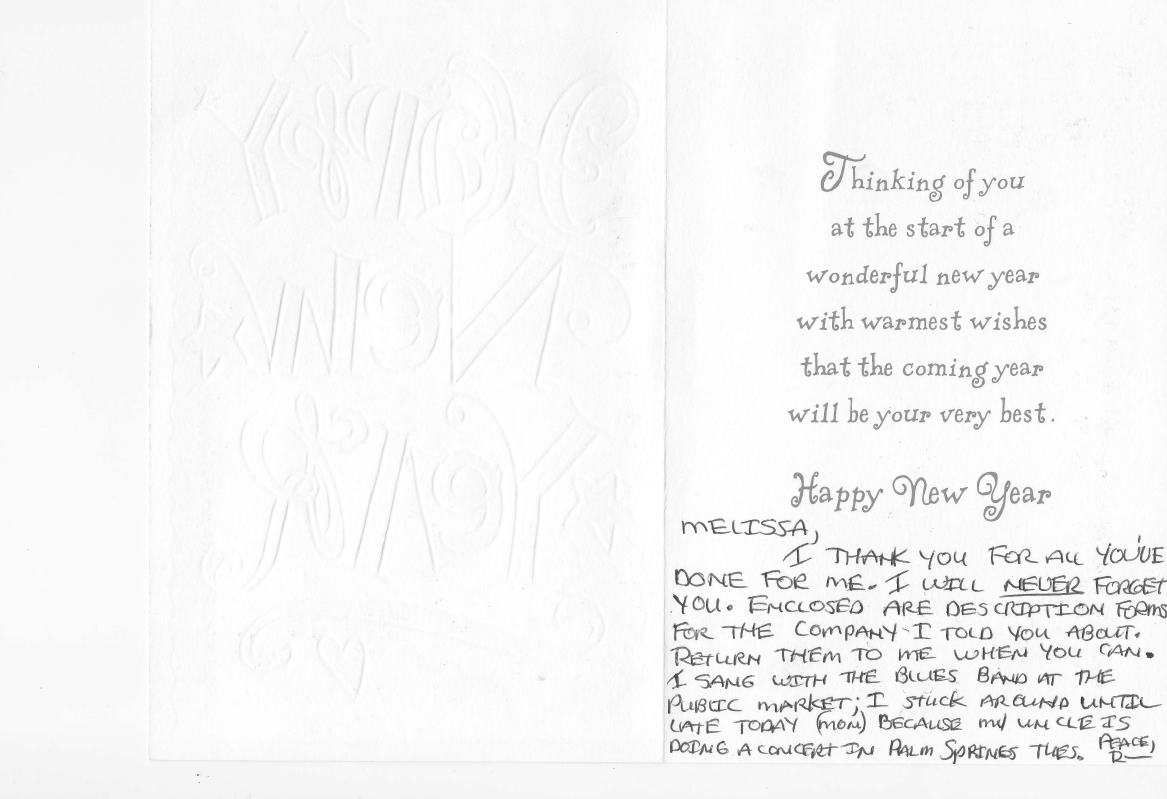 Thinking of you
at the start of a
wonderful new year
with warmest wishes
that the coming year
will be your very best.
Happy New Year
MELISSA,
I THANK YOU FOR ALL YOU'VE
DONE FOR ME. I WILL NEVER FORGET
YOU. ENCLOSED ARE DESCRIPTION FORMS
FOR THE COMPANY I TOLD YOU ABOUT.
RETURN THEM TO ME WHEN YOU CAN.
I SANG WITH THE BLUES BAND AT THE
PUBLIC MARKET; I STUCK AROUND UNTIL
LATE TODAY (MON) BECAUSE MY UNCLE IS
DOING A CONCERT IN PALM SPRINGS TUES. PEACE,
R